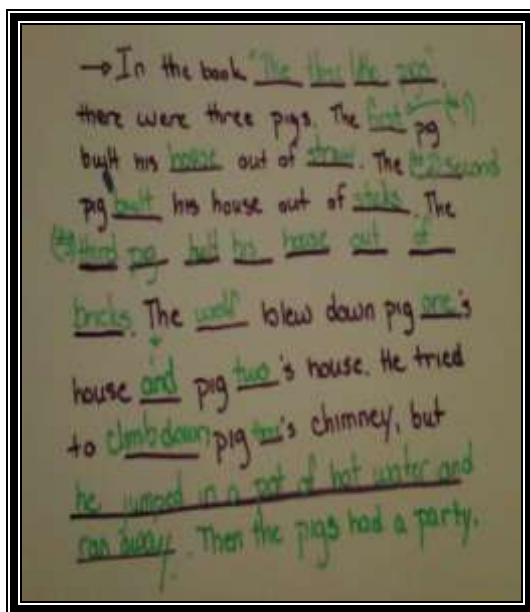 → In the book "The three little pigs",
there were three pigs. The first (#1) pig
built his house out of straw. The (#2) second
pig built his house out of sticks. The
(#3) third pig built his house out of
bricks. The wolf blew down pig one's
house and pig two's house. He tried
to climb down pig three's chimney, but
he jumped in a pot of hot water and
ran away. Then the pigs had a party.